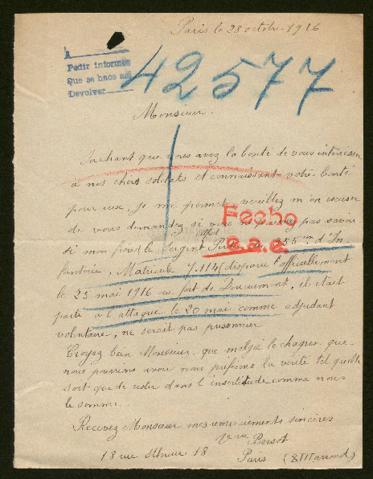 Paris le 28 octobre 1916
A
Pedir informes
Que se hace así
Devolver
42577
Monsieur
Sachant que vous avez la bonté de vous intéresser
à nos chers soldats et connaissant votre bonté
pour eux, je me permets veuillez m'en excuser
de vous demander si vous ne pouvez pas savoir
si mon fils le sergent du 55 d'In
Fecho
fanterie, Matricule 7.114 disparu officiellement
le 25 mai 1916 au fort de Douaumont, il était
parti à l'attaque le 20 mai comme adjudant
volontaire, ne serait pas prisonnier
Croyez bien Monsieur que malgré le chagrin que
nous pouvons avoir nous préférons la vérité tel quelle
soit que de rester dans l'incertitude comme nous
le sommes.
Recevez Monsieur mes remerciements sincères
Vve Bersot
18 rue 18 Paris